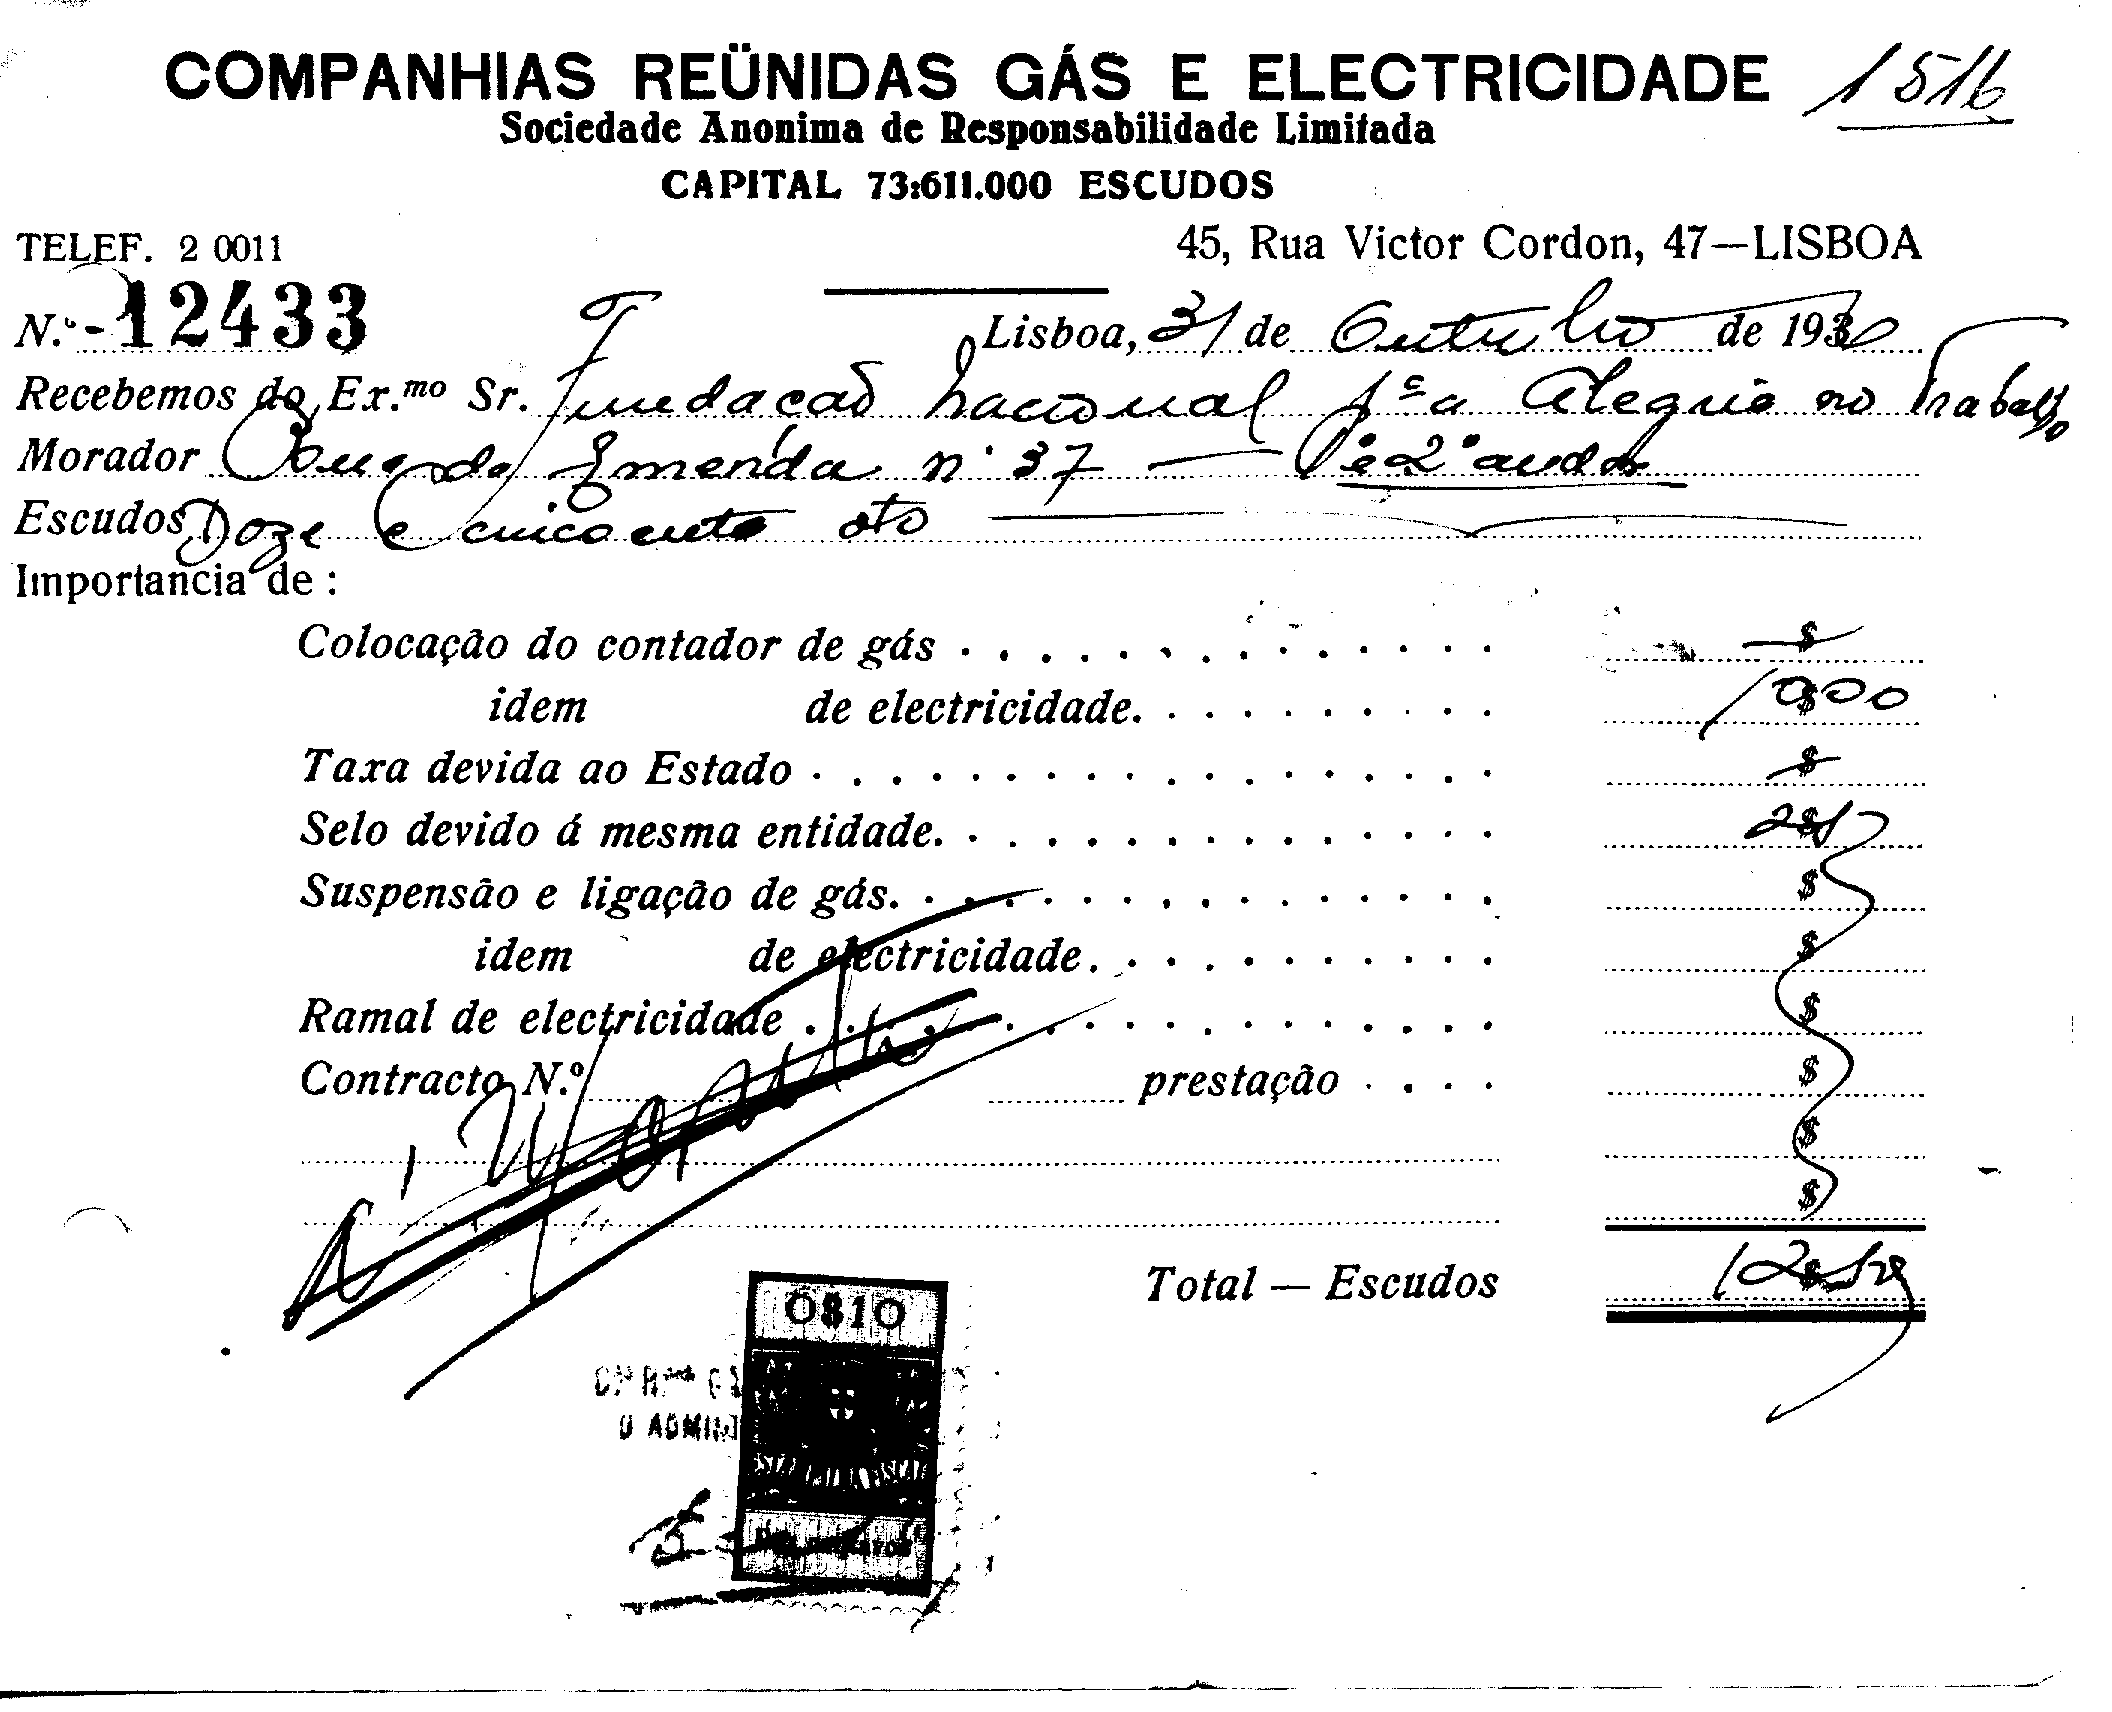 COMPANHIAS REÜNIDAS GÁS E ELECTRICIDADE 1516
Sociedade Anonima de Responsabilidade Limitada
CAPITAL 73:611.000 ESCUDOS
TELEF. 2 0011 45, Rua Victor Cordon, 47—LISBOA
N.º 12433 Lisboa, 31 de Outubro de 193
Recebemos do Ex.mo Sr. Fundação Nacional pª a Alegria no Trabalho
Morador Rua da Emenda nº 37 — 1º e 2º andar
Escudos Doze e cincoenta oto
Importancia de :
Colocação do contador de gás . . . . . . . . . . . . . . $
idem de electricidade. . . . . . . . . . 10$00
Taxa devida ao Estado . . . . . . . . . . . . . . . . . . $
Selo devido á mesma entidade. . . . . . . . . . . . . . .
Suspensão e ligação de gás. . . . . . . . . . . . . . . . $
idem de electricidade. . . . . . . . . . . $
Ramal de electricidade . . . . . . . . . . . . . . . . . . $
Contracto N.º prestação . . . . $
$
$
Total — Escudos
0$10
O ADMIN
ESTAMPILHA FISCAL